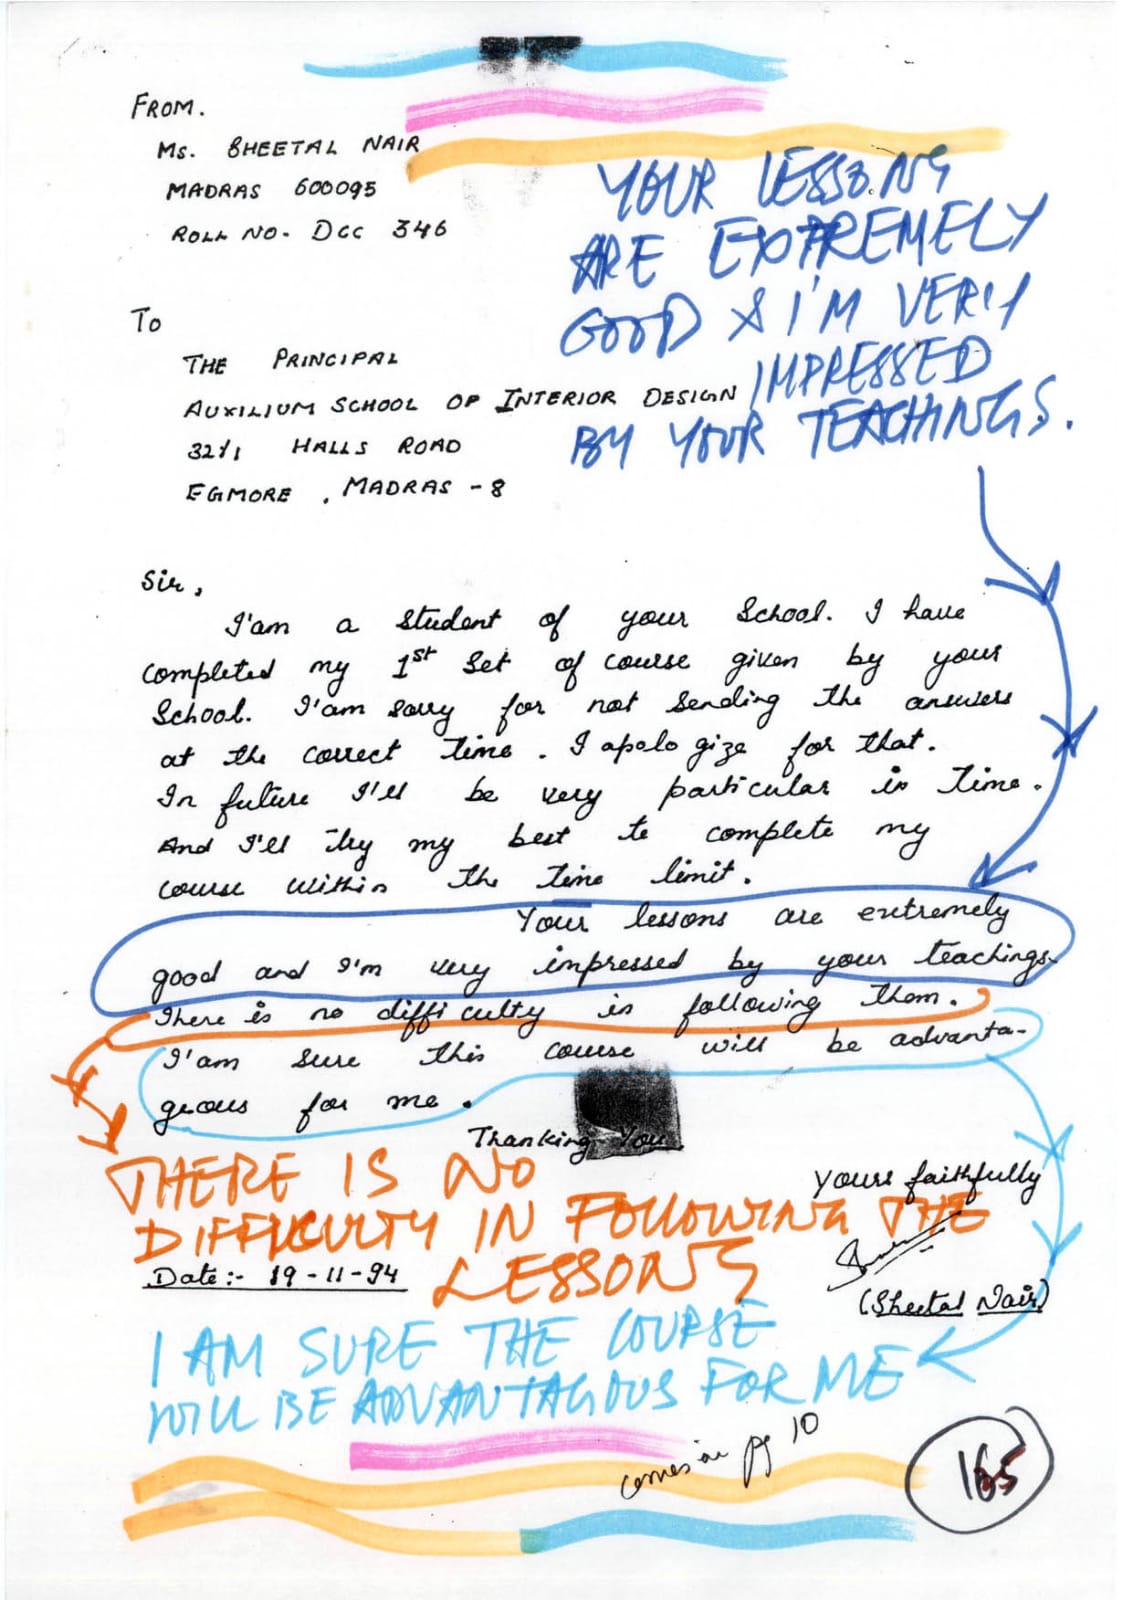 FROM.
MS. SHEETAL NAIR
MADRAS 600095
ROLL NO. DCC 346
YOUR LESSONS
ARE EXTREMELY
GOOD & I'M VERY
IMPRESSED
BY YOUR TEACHINGS.
To
THE PRINCIPAL
AUXILIUM SCHOOL OF INTERIOR DESIGN
32/1 HALLS ROAD
EGMORE, MADRAS - 8
Sir,
I'am a student of your School. I have
completed my 1st Set of course given by your
School. I'am sorry for not sending the answers
at the correct time. I apologize for that.
In future I'll be very particular in time.
And I'll try my best to complete my
course within the time limit.
Your lessons are extremely
good and I'm very impressed by your teachings.
There is no difficulty in following them.
I'am sure this course will be advanta-
geous for me.
Thanking You.
Yours faithfully
THERE IS NO
DIFFICULTY IN FOLLOWING THE
LESSONS
Date:- 19-11-94
(Sheetal Nair)
I AM SURE THE COURSE
WILL BE ADVANTAGIOUS FOR ME
comes in pg 10
165